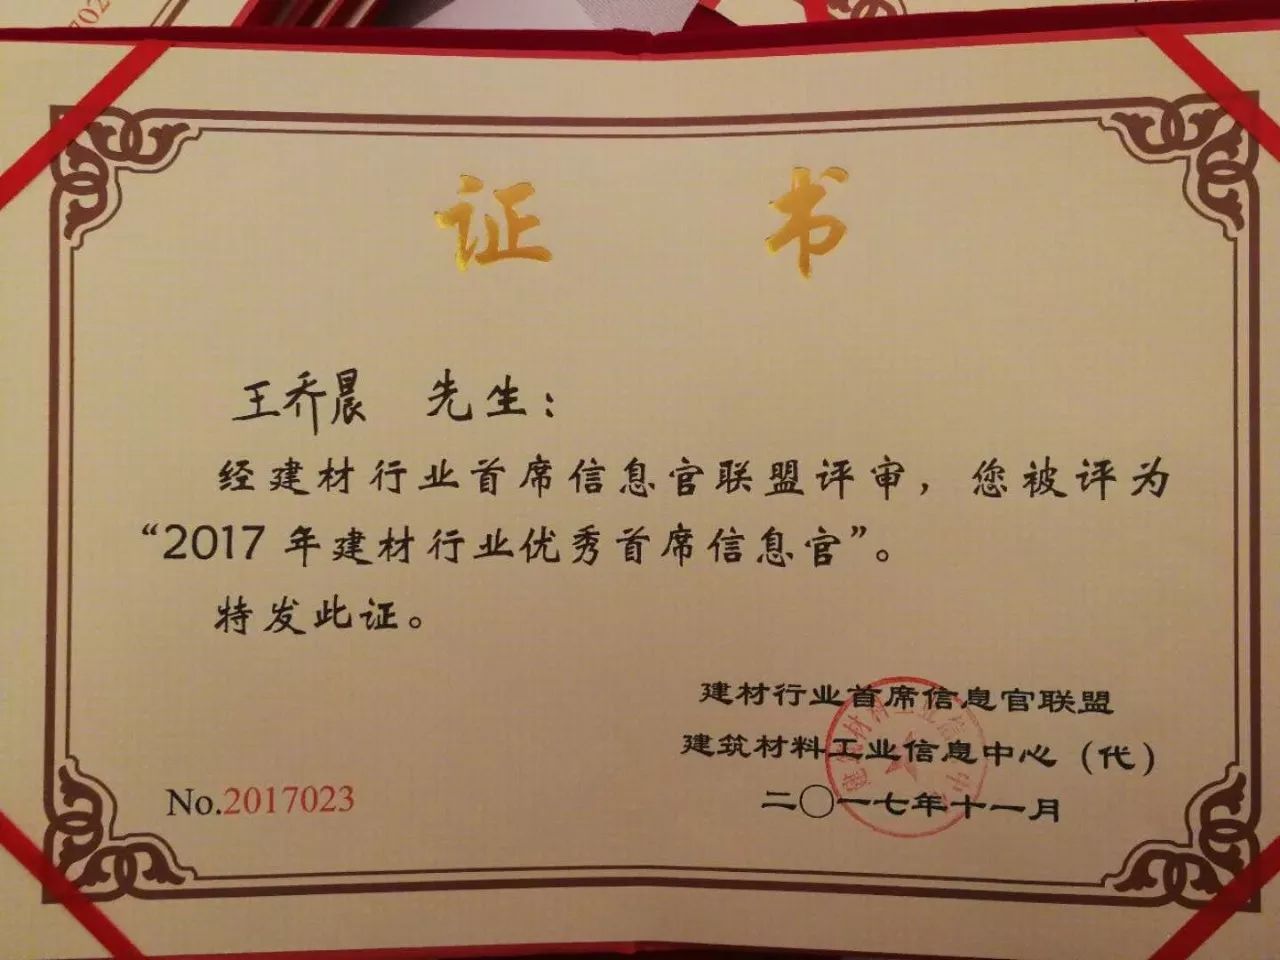 证书
王乔晨 先生：
经建材行业首席信息官联盟评审，您被评为
“2017年建材行业优秀首席信息官”。
特发此证。
建材行业首席信息官联盟
建筑材料工业信息中心（代）
二〇一七年十一月
No.2017023